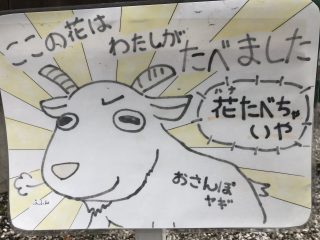 ここの花は わたしが たべました
バナ
花たべちゃ
いや
おさんぽ
ヤギ